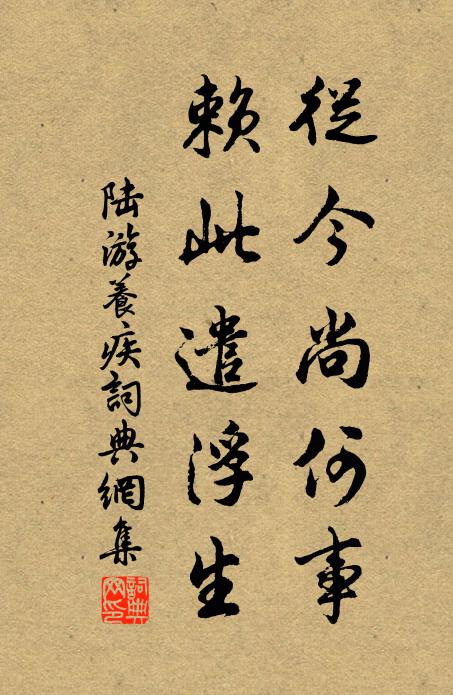 從今尚何事
賴此遣浮生
陸游養疾詞典網集
詞典網印